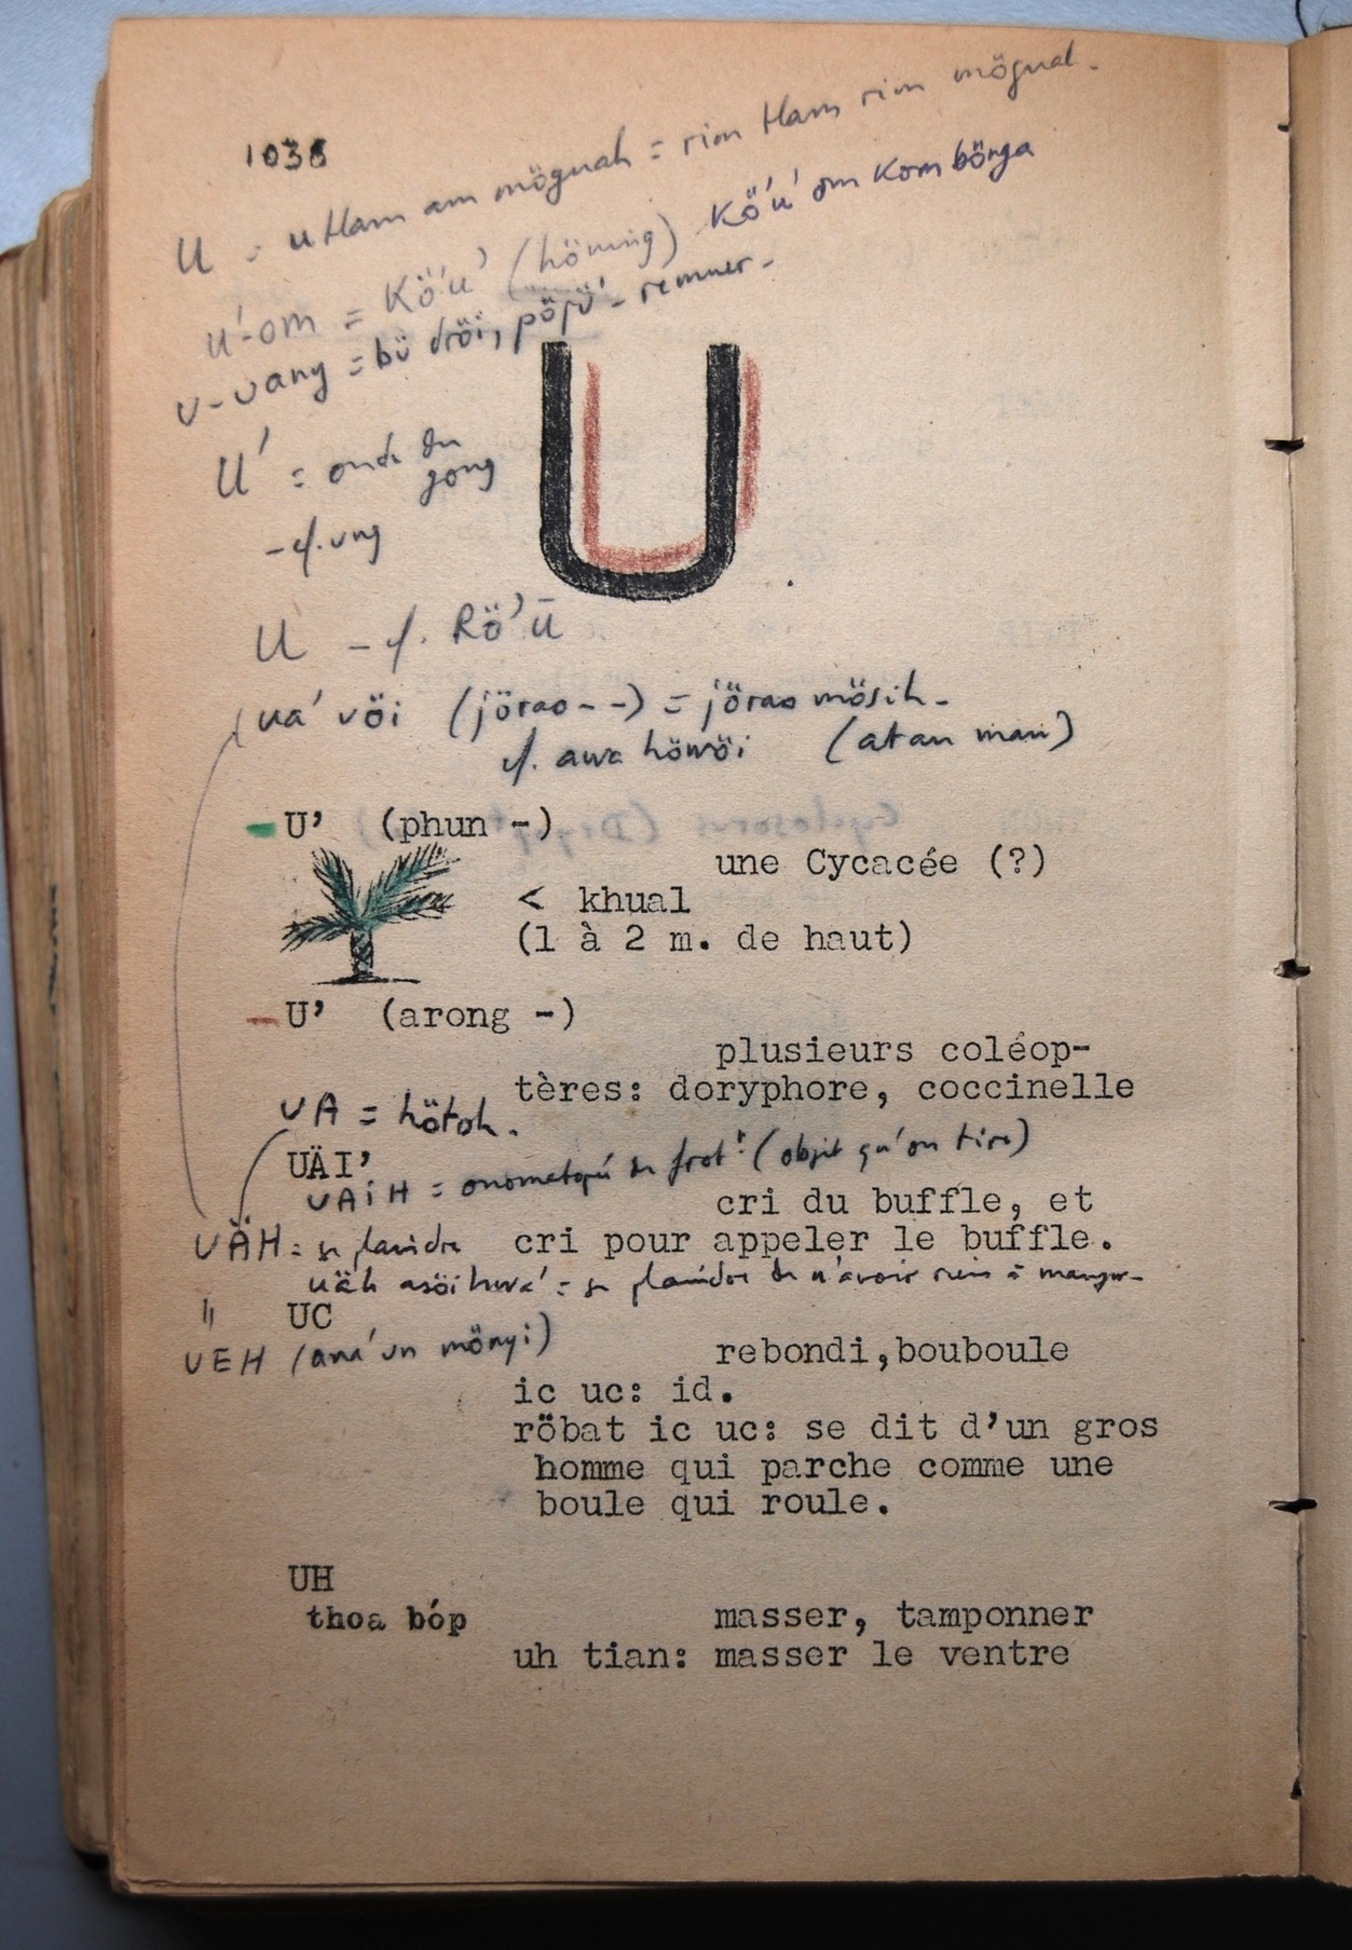 1038
U = u Ham am mögnah = rim Ham rim mögnal.
U'-om = Kö'u' (höning) Kö'u' om Kom bönga
U-uang = bü dröi, pöpü' - remuer -
U' = onde du gong
- cf. ung
U
U - cf. Rö'ū
ua' vöi (jörao - -) = jörao mösih -
cf. awa höwöi (atau mau)
U' (phun -)
une Cycacée (?)
< khual
(1 à 2 m. de haut)
U' (arong -)
plusieurs coléop-
tères: doryphore, coccinelle
UA = hötoh.
UÄI'
UAIH = onomatopée du frot! (objet qu'on tire)
cri du buffle, et
UÄH = se plaindre cri pour appeler le buffle.
uäh asöi huva' = se plaindre de n'avoir rien à manger -
" UC
UEH (ana' un mönyi)
rebondi,bouboule
ic uc: id.
röbat ic uc: se dit d'un gros
homme qui parche comme une
boule qui roule.
UH
thoa bóp masser, tamponner
uh tian: masser le ventre